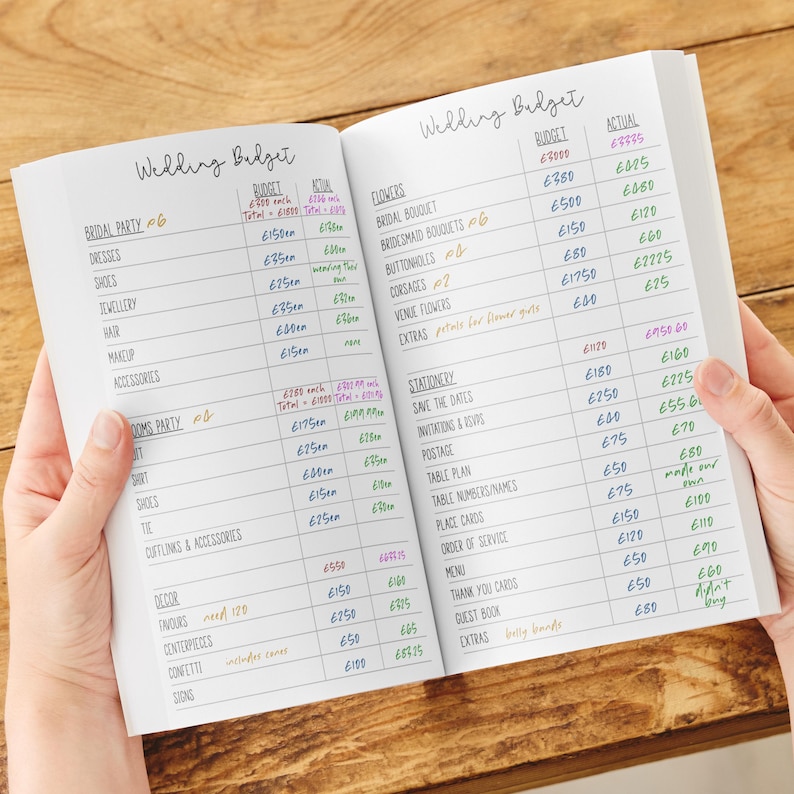 Wedding Budget
BUDGET ACTUAL
BRIDAL PARTY x6 £300 each £266 each
Total = £1800 Total = £1596
DRESSES £150ea £138ea
SHOES £35ea £60ea
JEWELLERY £25ea wearing ther own
HAIR £35ea £32ea
MAKEUP £40ea £36ea
ACCESSORIES £15ea none
OOMS PARTY x4 £280 each £302.99 each
Total = £1000 Total = £1211.96
UIT £175ea £199.99ea
SHIRT £25ea £28ea
SHOES £40ea £35ea
TIE £15ea £10ea
CUFFLINKS & ACCESSORIES £25ea £30ea
DECOR £550 £633.25
FAVOURS need 120 £150 £160
CENTERPIECES £250 £325
CONFETTI includes cones £50 £65
SIGNS £100 £83.25
Wedding Budget
BUDGET ACTUAL
FLOWERS £3000 £3335
BRIDAL BOUQUET £380 £425
BRIDESMAID BOUQUETS x6 £500 £480
BUTTONHOLES x4 £150 £120
CORSAGES x2 £80 £60
VENUE FLOWERS £1750 £2225
EXTRAS petals for flower girls £40 £25
STATIONERY £1120 £950.60
SAVE THE DATES £180 £160
INVITATIONS & RSVPS £250 £225
POSTAGE £40 £55.60
TABLE PLAN £75 £70
TABLE NUMBERS/NAMES £50 £80
PLACE CARDS £75 made our own
ORDER OF SERVICE £150 £100
MENU £120 £110
THANK YOU CARDS £50 £90
GUEST BOOK £50 £60
EXTRAS belly bands £80 didn't buy